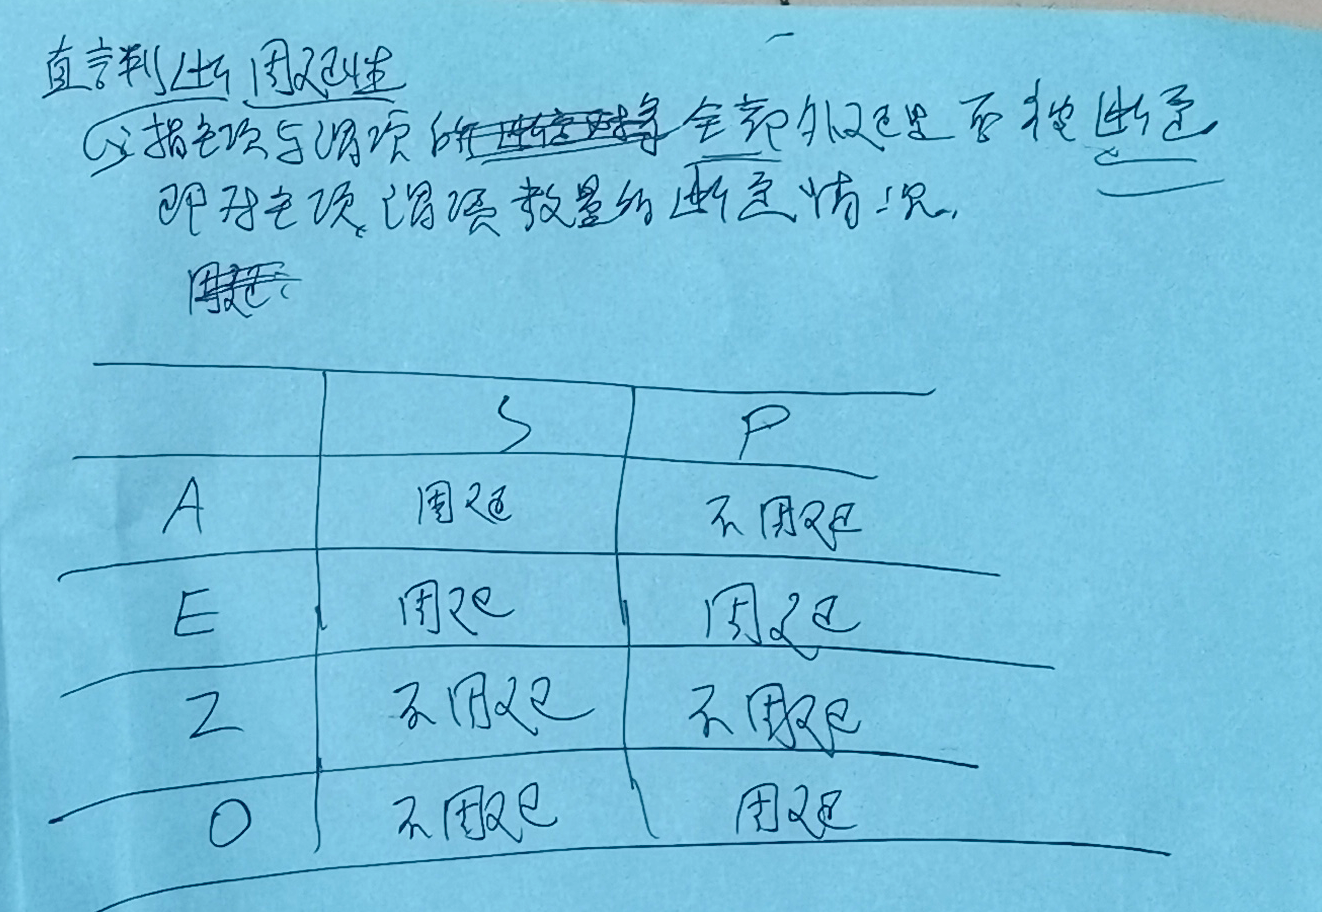 直言判断周延性
指主项与谓项的全部外延是否被断定
即对主项、谓项数量的断定情况.
S P
A 周延 不周延
E 周延 周延
I 不周延 不周延
O 不周延 周延